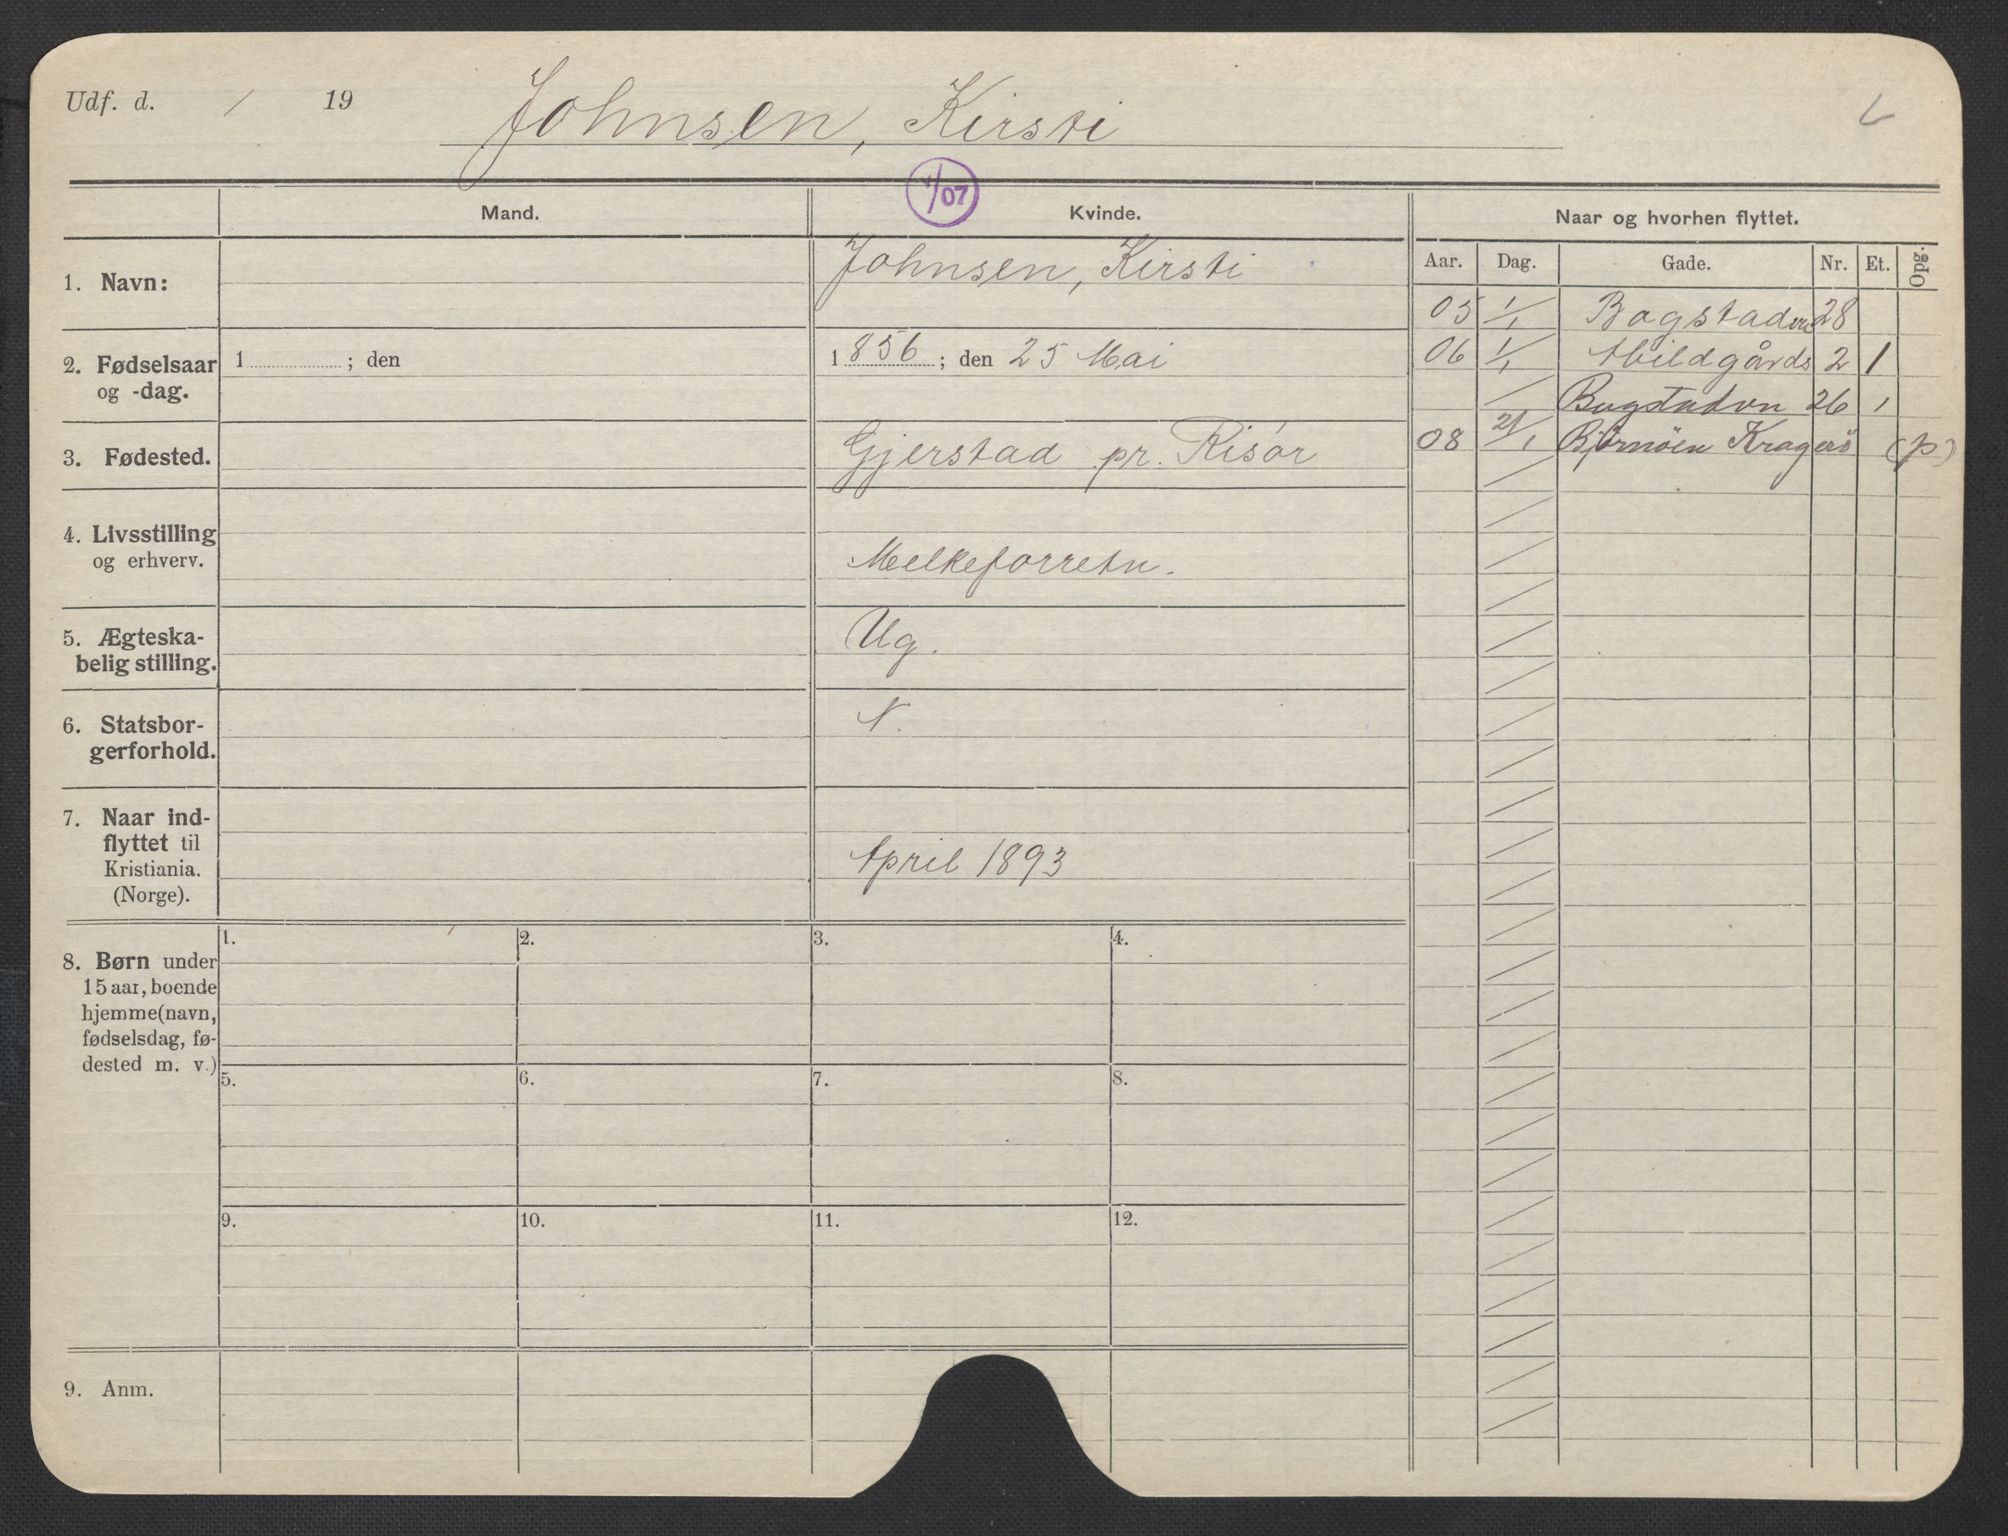 Udf. d. / 19 Johnsen, Kirsti
1/07
Mand. Kvinde. Naar og hvorhen flyttet.
Aar. Dag. Gade. Nr. Et. Opg.
1. Navn: Johnsen, Kirsti
05 1/1 Bogstadvn 28
2. Fødselsaar 1 ; den 1 856 ; den 25 Mai
og -dag.
06 1/1 Abildgårds 2 1
/ Bogstadvn 26 1
08 21/1 Bjørnöen Kragerö (p)
3. Fødested. Gjerstad pr. Risør
4. Livsstilling
og erhverv. Melkeforretn.
5. Ægteska-
belig stilling. Ug.
6. Statsbor-
gerforhold. N.
7. Naar ind-
flyttet til
Kristiania.
(Norge). April 1893
8. Børn under
15 aar, boende
hjemme(navn,
fødselsdag, fø-
dested m. v.)
1. 2. 3. 4.
5. 6. 7. 8.
9. 10. 11. 12.
9. Anm.